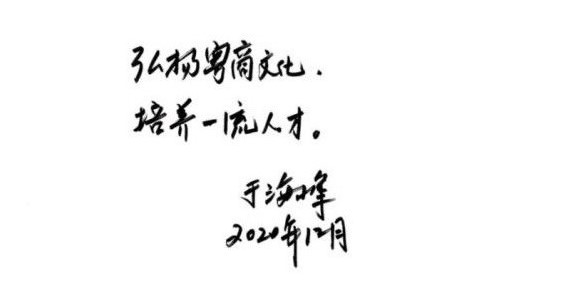 弘扬粤商文化.
培养一流人才。
于海峰
2020年12月